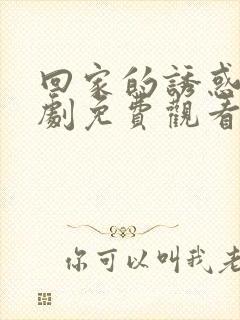 回家的誘惑
劇免費觀看
你可以叫我老